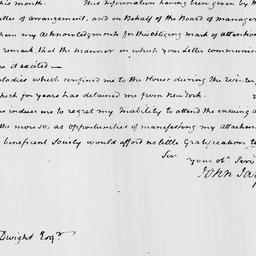 this month. This Information having been given by th
etter of arrangement, and on Behalf of the Board of manager
them my acknowledgments for this obliging mark of attention
remark that the manner in which your Letter communica
e it excited—
aladies which confined me to the House during the Winter,
which for years has detained me from New York.
as induce me to regret my Inability to attend the ensuing a
the more so, as opportunities of manifesting my Attachm
beneficent Society would afford no little Gratification to
Sir
your obt. Servt
John Jay
Dwight Esqr.